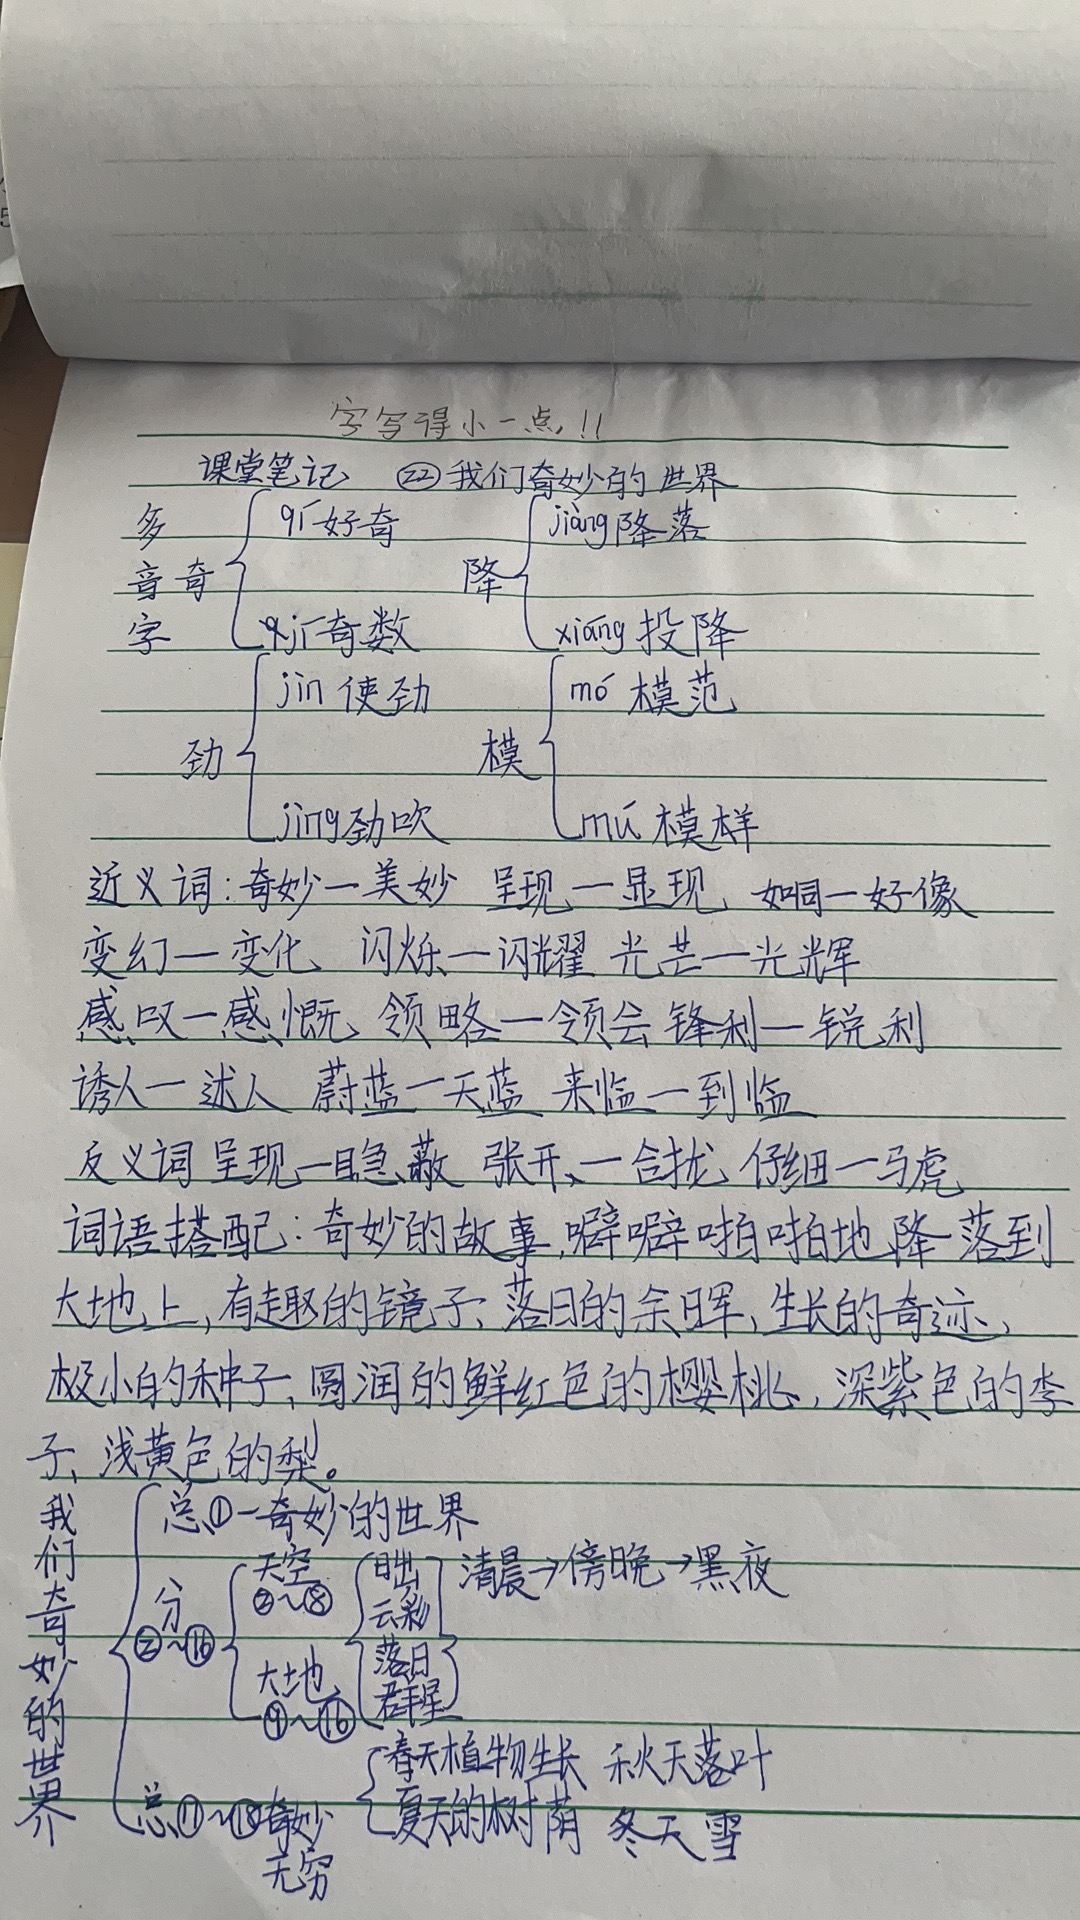 字写得小一点!!
课堂笔记 ㉒我们奇妙的世界
多音字
奇 qí好奇 jī奇数
降 jiàng降落 xiáng投降
劲 jìn使劲 jìng劲吹
模 mó模范 mú模样
近义词:奇妙—美妙 呈现—显现 如同—好像
变幻—变化 闪烁—闪耀 光芒—光辉
感叹—感慨 领略—领会 锋利—锐利
诱人—迷人 蔚蓝—天蓝 来临—到临
反义词 呈现—隐蔽 张开—合拢 仔细—马虎
词语搭配:奇妙的故事,噼噼啪啪地降落到
大地上,有趣的镜子、落日的余晖,生长的奇迹、
极小的种子,圆润的鲜红色的樱桃,深紫色的李
子、浅黄色的梨。
我们奇妙的世界
总①—奇妙的世界
分②~⑯
天空②~⑧
日出 云彩 落日 群星
清晨→傍晚→黑夜
大地⑨~⑯
春天植物生长 秋天落叶
夏天的树荫 冬天雪
总⑰~⑱奇妙无穷